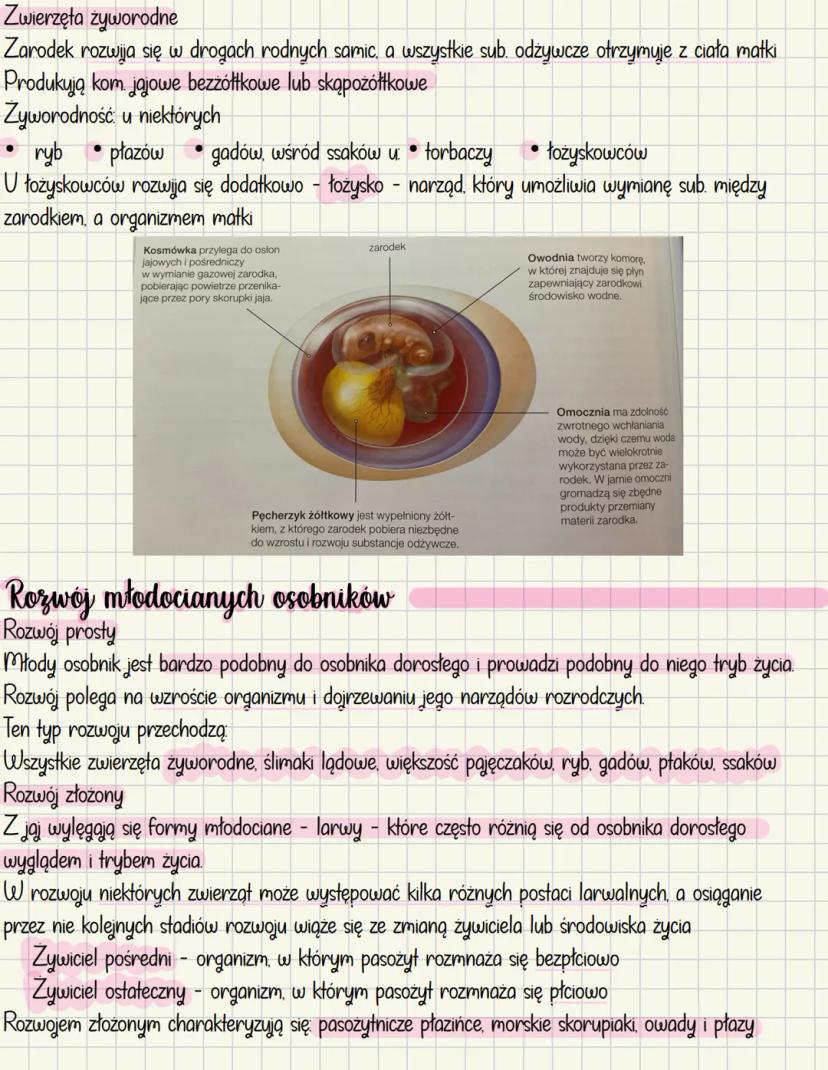 Zwierzęta żyworodne
Zarodek rozwija się w drogach rodnych samic, a wszystkie sub. odżywcze otrzymuje z ciała matki
Produkują kom. jajowe bezżółtkowe lub skąpożółtkowe
Żyworodność: u niektórych
• ryb • płazów • gadów, wśród ssaków u: • torbaczy • łożyskowców
U łożyskowców rozwija się dodatkowo - łożysko - narząd, który umożliwia wymianę sub. między
zarodkiem, a organizmem matki
Kosmówka przylega do osłon
jajowych i pośredniczy
w wymianie gazowej zarodka,
pobierając powietrze przenika-
jące przez pory skorupki jaja.
zarodek
Owodnia tworzy komorę,
w której znajduje się płyn
zapewniający zarodkowi
środowisko wodne.
Omocznia ma zdolność
zwrotnego wchłaniania
wody, dzięki czemu woda
może być wielokrotnie
wykorzystana przez za-
rodek. W jamie omoczni
gromadzą się zbędne
produkty przemiany
materii zarodka.
Pęcherzyk żółtkowy jest wypełniony żółt-
kiem, z którego zarodek pobiera niezbędne
do wzrostu i rozwoju substancje odżywcze.
Rozwój młodocianych osobników
Rozwój prosty
Młody osobnik jest bardzo podobny do osobnika dorosłego i prowadzi podobny do niego tryb życia.
Rozwój polega na wzroście organizmu i dojrzewaniu jego narządów rozrodczych.
Ten typ rozwoju przechodzą:
Wszystkie zwierzęta żyworodne, ślimaki lądowe, większość pajęczaków, ryb, gadów, ptaków, ssaków
Rozwój złożony
Z jaj wylęgają się formy młodociane - larwy - które często różnią się od osobnika dorosłego
wyglądem i trybem życia.
W rozwoju niektórych zwierząt może występować kilka różnych postaci larwalnych, a osiąganie
przez nie kolejnych stadiów rozwoju wiąże się ze zmianą żywiciela lub środowiska życia
Żywiciel pośredni - organizm, w którym pasożyt rozmnaża się bezpłciowo
Żywiciel ostateczny - organizm, w którym pasożyt rozmnaża się płciowo
Rozwojem złożonym charakteryzują się: pasożytnicze płazińce, morskie skorupiaki, owady i płazy